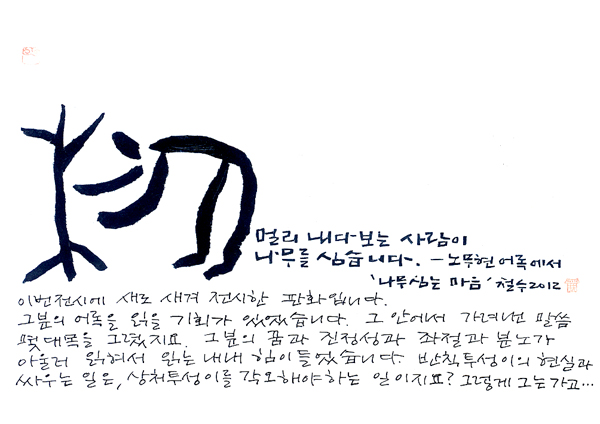 멀리 내다보는 사람이
나무를 심습니다. - 노무현 어록에서
'나무심는 마음' 철수 2012
이번전시에 새로 새겨 전시한 판화입니다.
그분의 어록을 읽을 기회가 있었습니다. 그 안에서 가려낸 말씀
몇 대목을 그렸지요. 그분의 꿈과 진정성과 좌절과 분노가
아울러 읽혀서 읽는 내내 힘이 들었습니다. 반칙투성이의 현실과
싸우는 일은, 상처투성이를 각오해야하는 일이지요? 그렇게 그는가고…